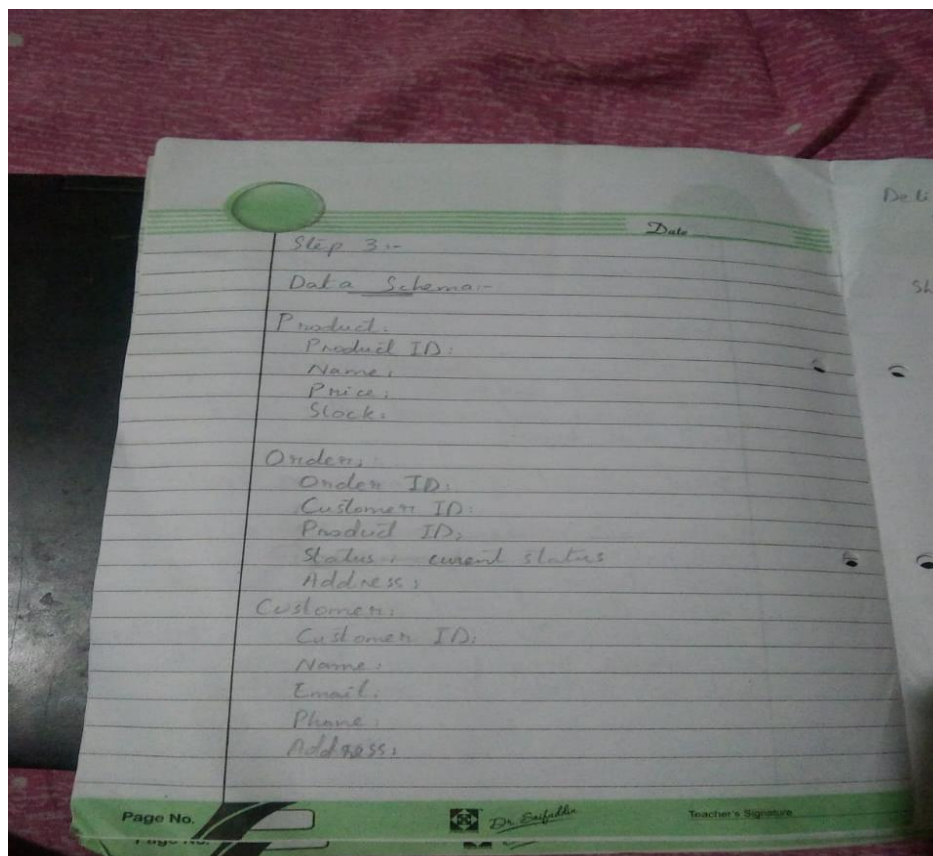 Date
Step 3 :-
Data Schema :-
Product :
Product ID :
Name :
Price :
Stock :
Order :
Order ID :
Customer ID :
Product ID :
Status : curent status
Address :
Customer :
Customer ID :
Name :
Email :
Phone :
Address :
Page No.
Dr. Saifuddin
Teacher's Signature
Page No.
Deli
Sh